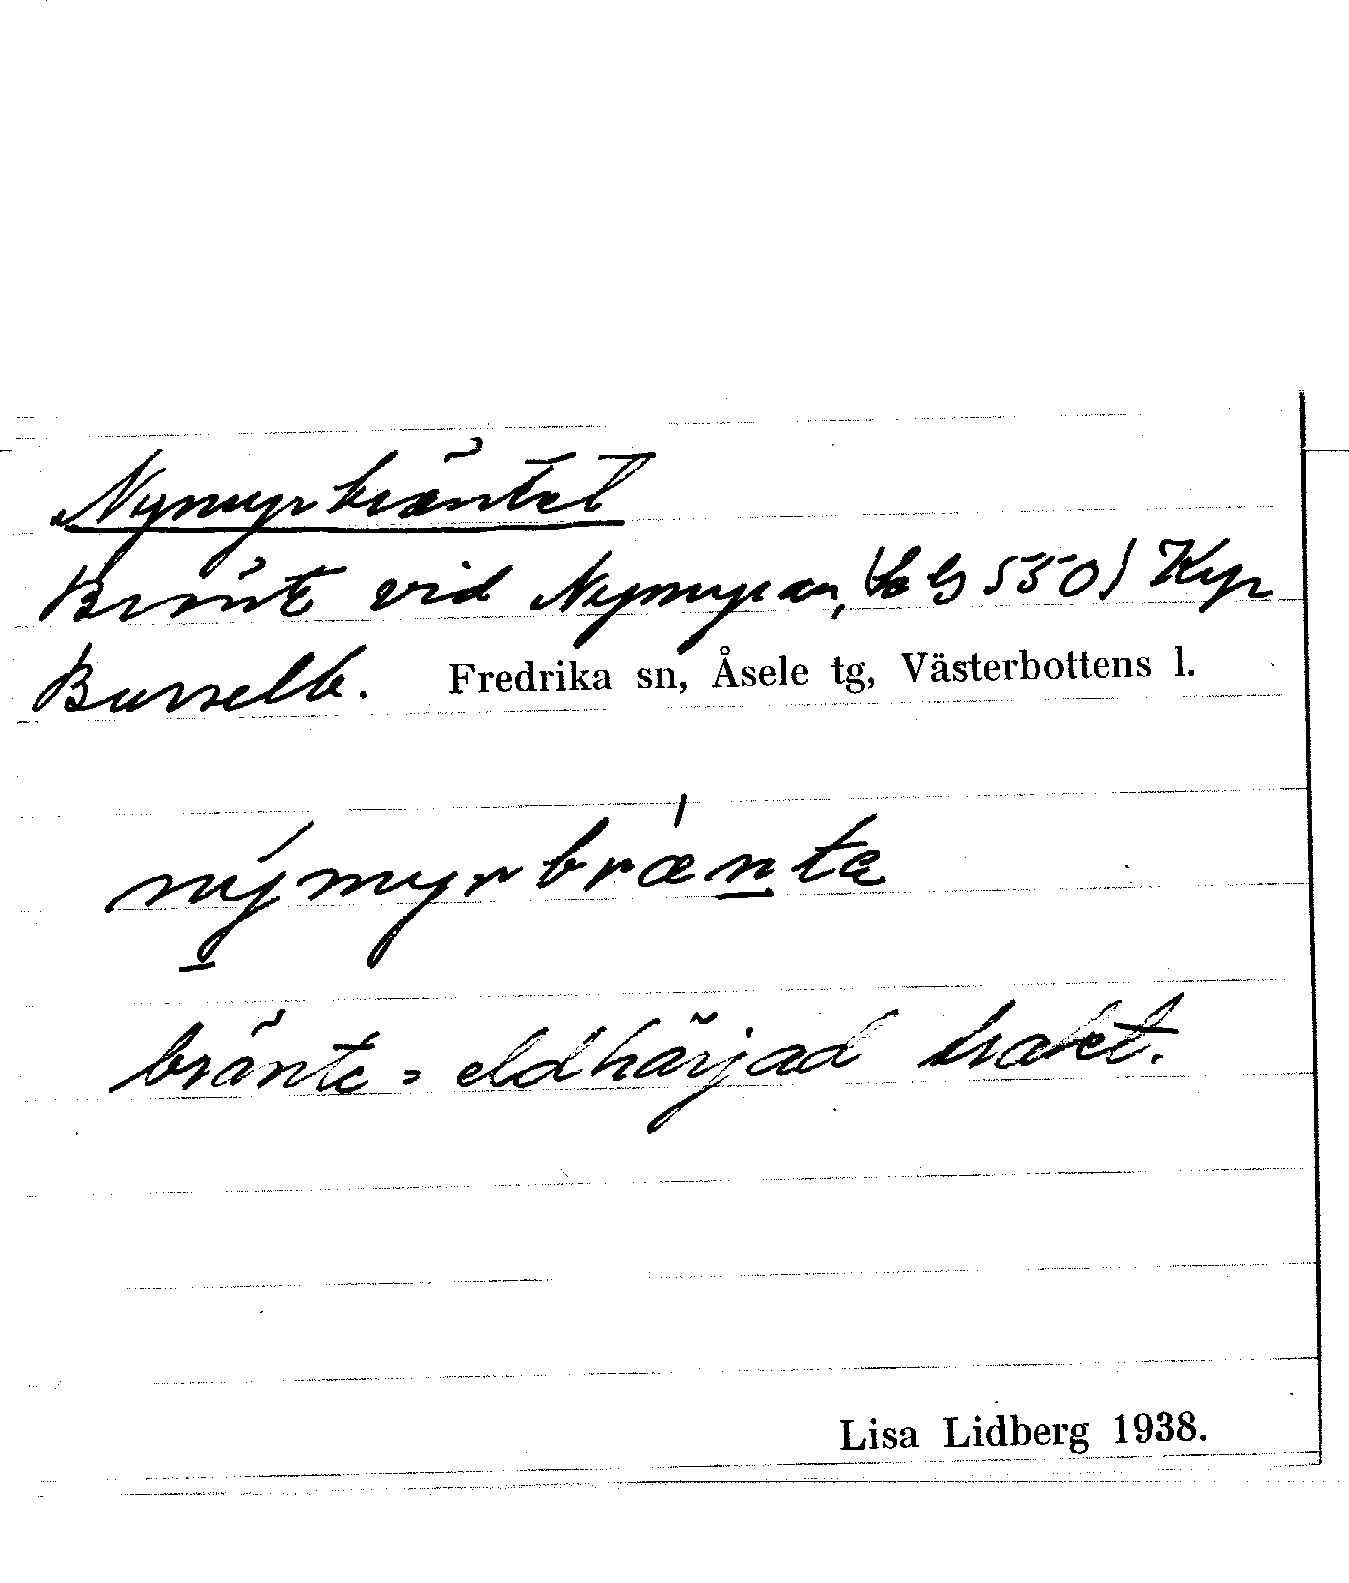 Nymyrbräntet
Bränt vid Nymyran, 550) Kyr
Bursellb. Fredrika sn, Åsele tg, Västerbottens l.
nýmyrbrænta
bränte = eldhärjad trakt.
Lisa Lidberg 1938.